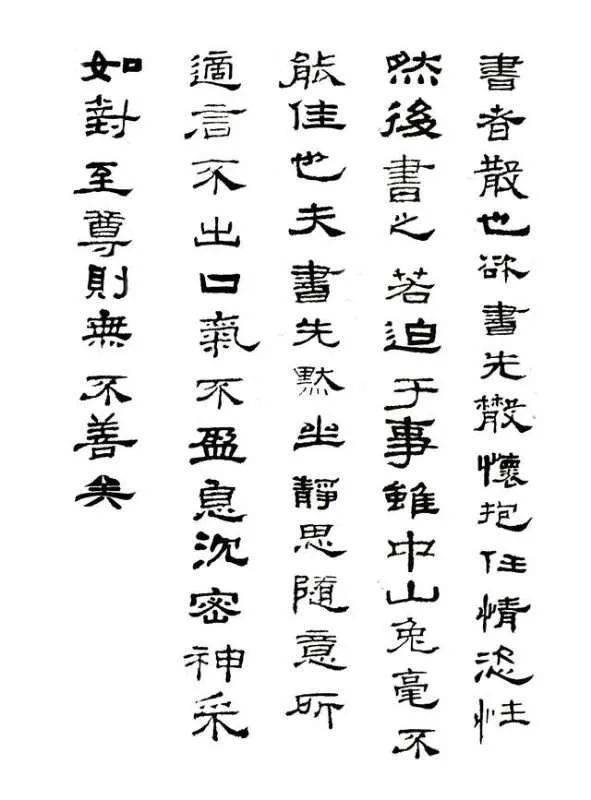 書者散也欲書先散懷抱任情恣性
然後書之若迫于事雖中山兔毫不
能佳也夫書先默坐靜思隨意所
適言不出口氣不盈息沉密神采
如對至尊則無不善矣